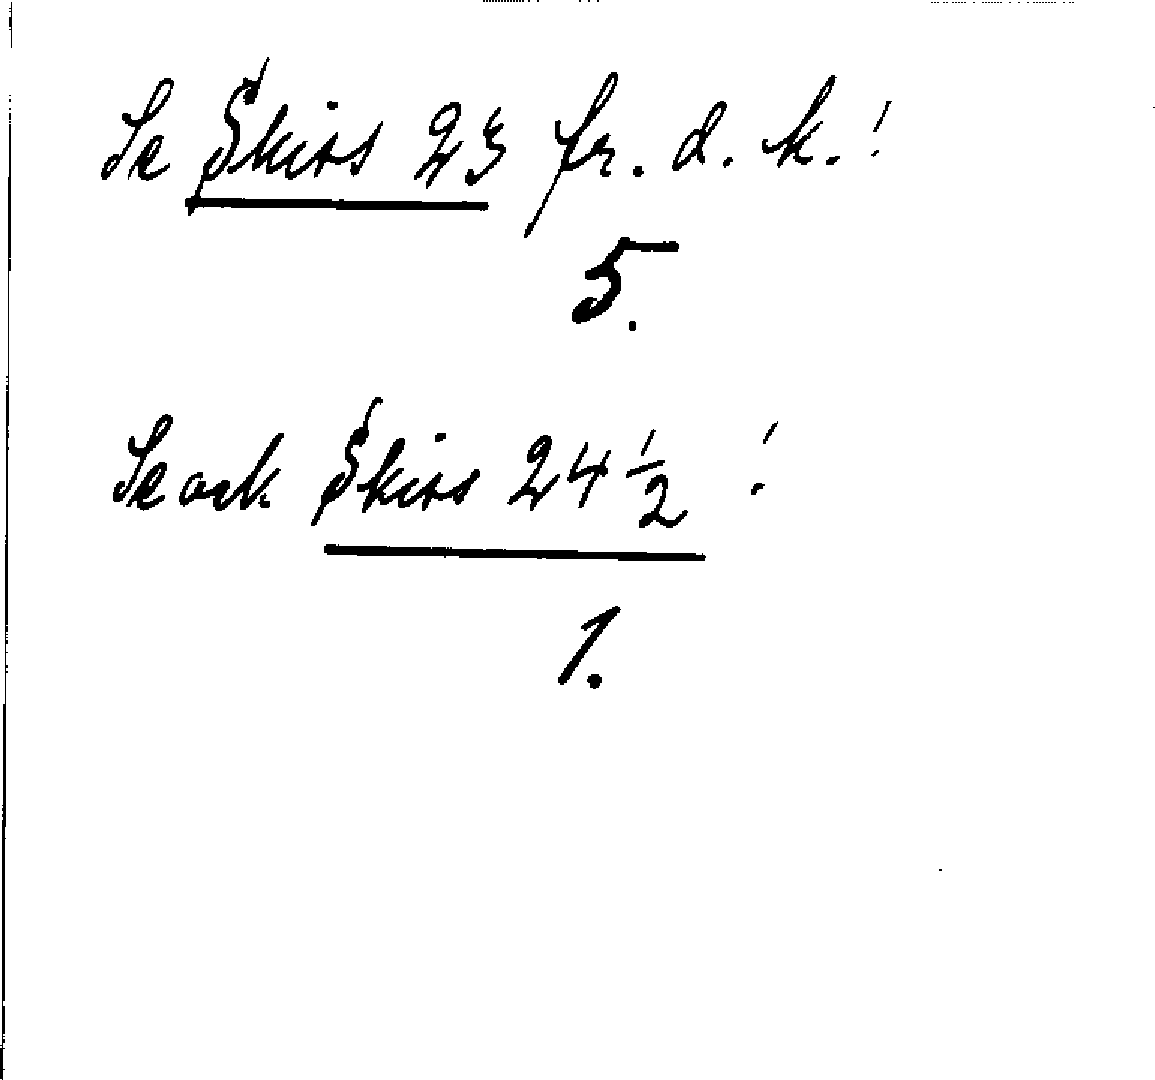 Se Skiss 23 fr. d. k.!
5.
Se ock Skiss 24 1/2 !
1.